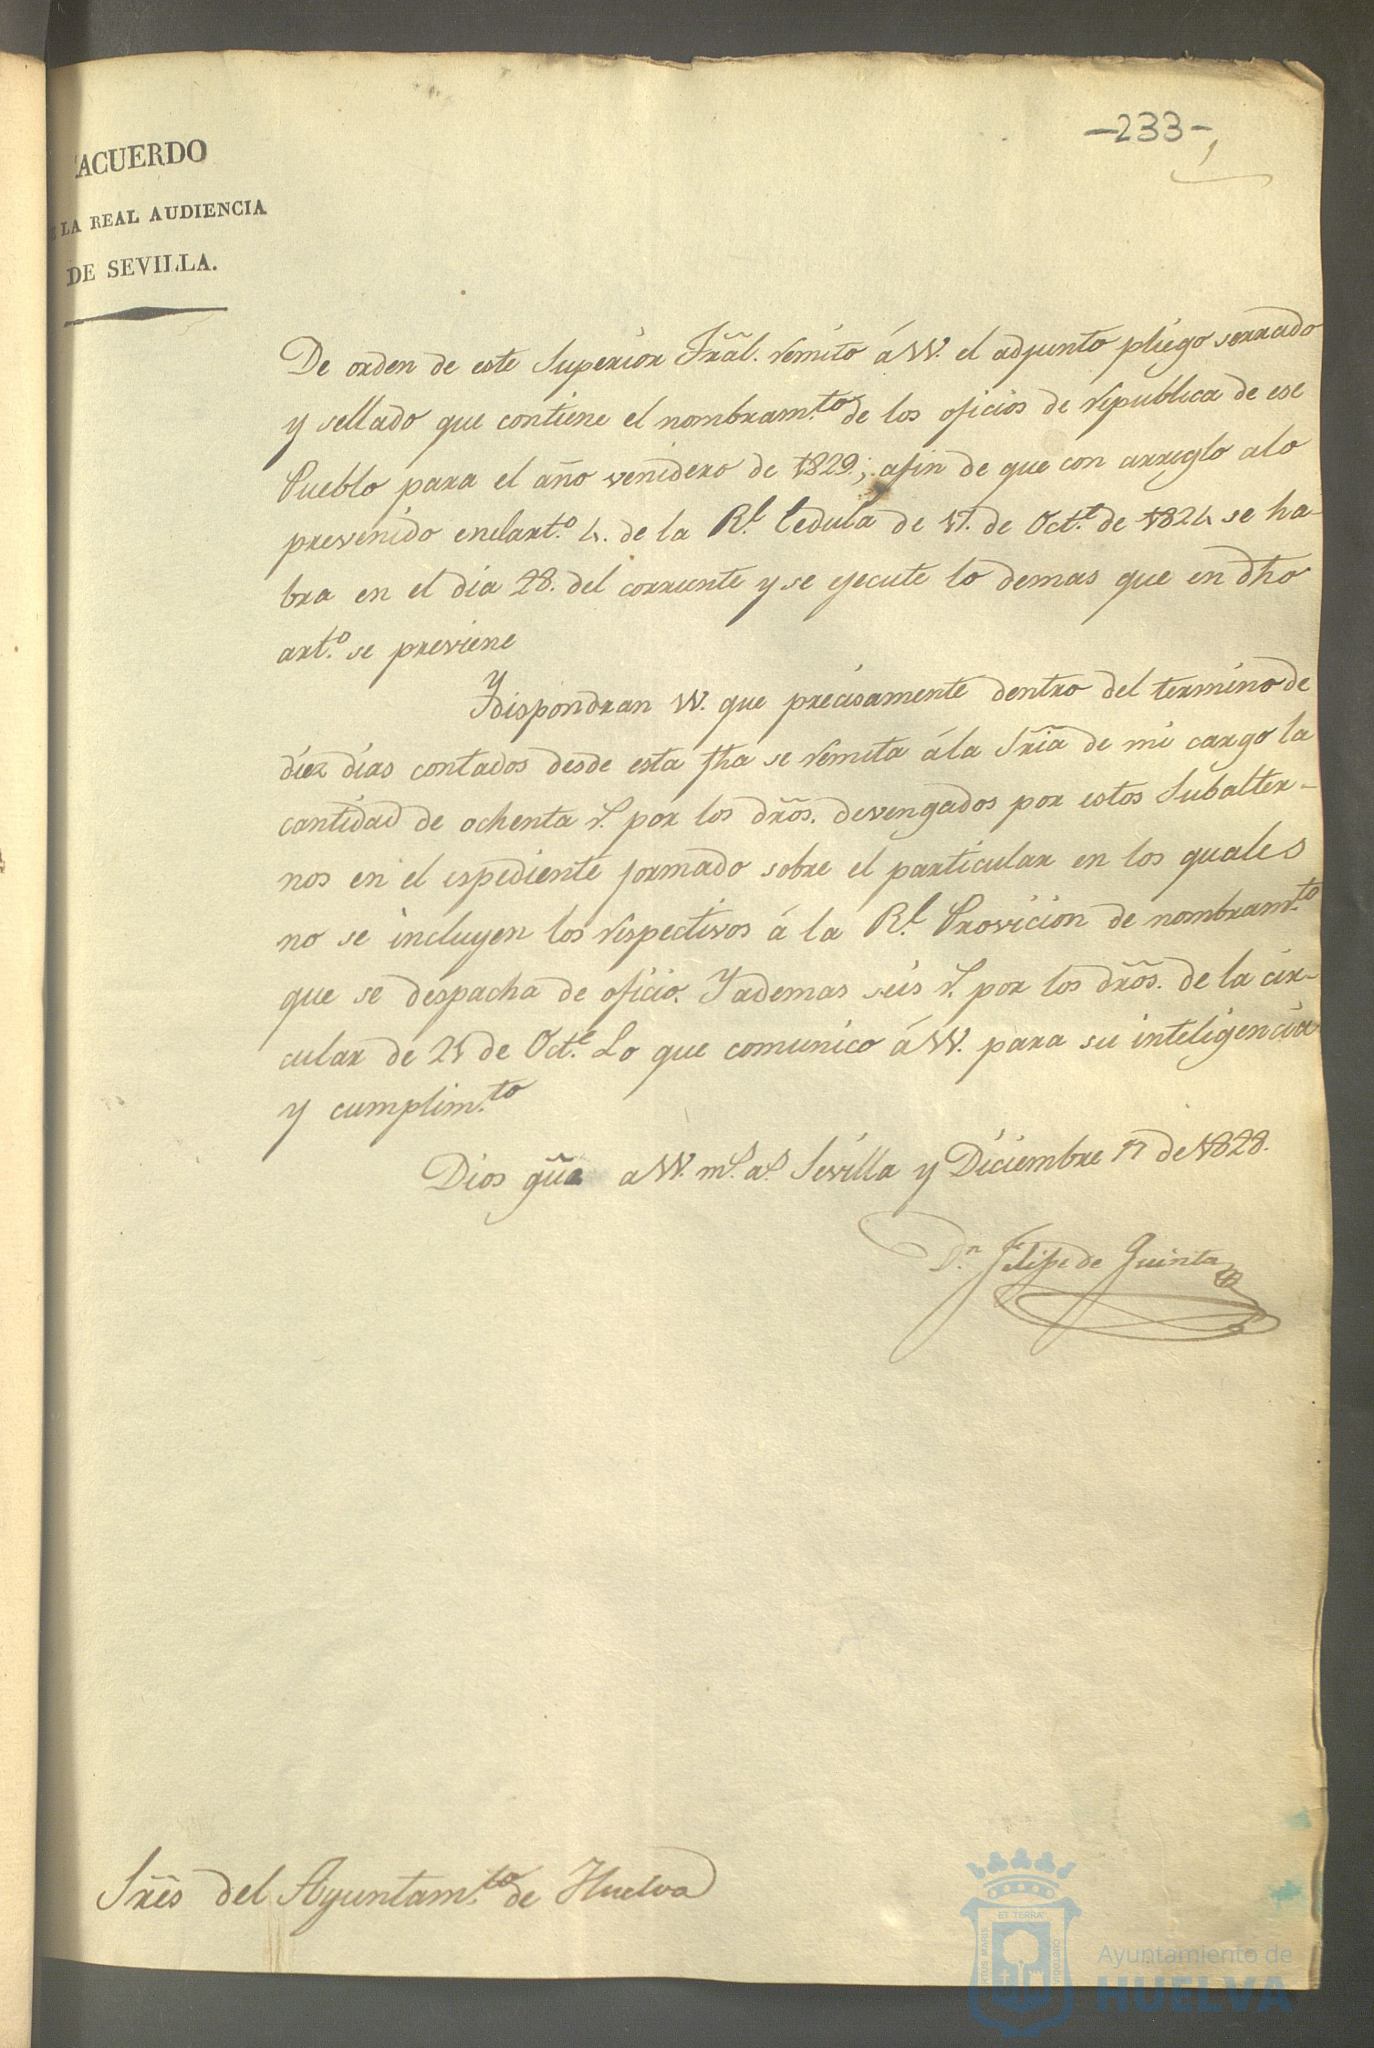 -233-
ACUERDO
LA REAL AUDIENCIA
DE SEVILLA.
De orden de este Superior Trãl. remito á VV. el adjunto pliego serrado
y sellado que contiene el nombram.to de los oficios de republica de ese
Pueblo para el año venidero de 1829; afin de que con arreglo alo
prevenido enelart.o 4. de la R.l Cedula de 17. de Oct.e de 1824 se ha-
bra en el dia 28. del corriente y se ejecute lo demas que en dho
art.o se previene
Y dispondran VV. que precisamente dentro del termino de
diez dias contados desde esta fha se remita ála Sr̃ia de mi cargo la
cantidad de ochenta r.s por los dr̃os. devengados por estos Subalter-
nos en el espediente formado sobre el particular en los quales
no se incluyen los respectivos á la R.l Provicion de nombram.to
que se despacha de oficio. Y ademas seis r.s por los dr̃os. de la cir-
cular de 21 de Oct.e Lo que comunico á VV. para su inteligencia
y cumplim.to
Dios gũe a VV. m.s a.s Sevilla y Diciembre 17 de 1828.
D.n Felipe de Quinta
Sr̃es del Ayuntam.to de Huelva
ET TERRA
Ayuntamiento de
HUELVA